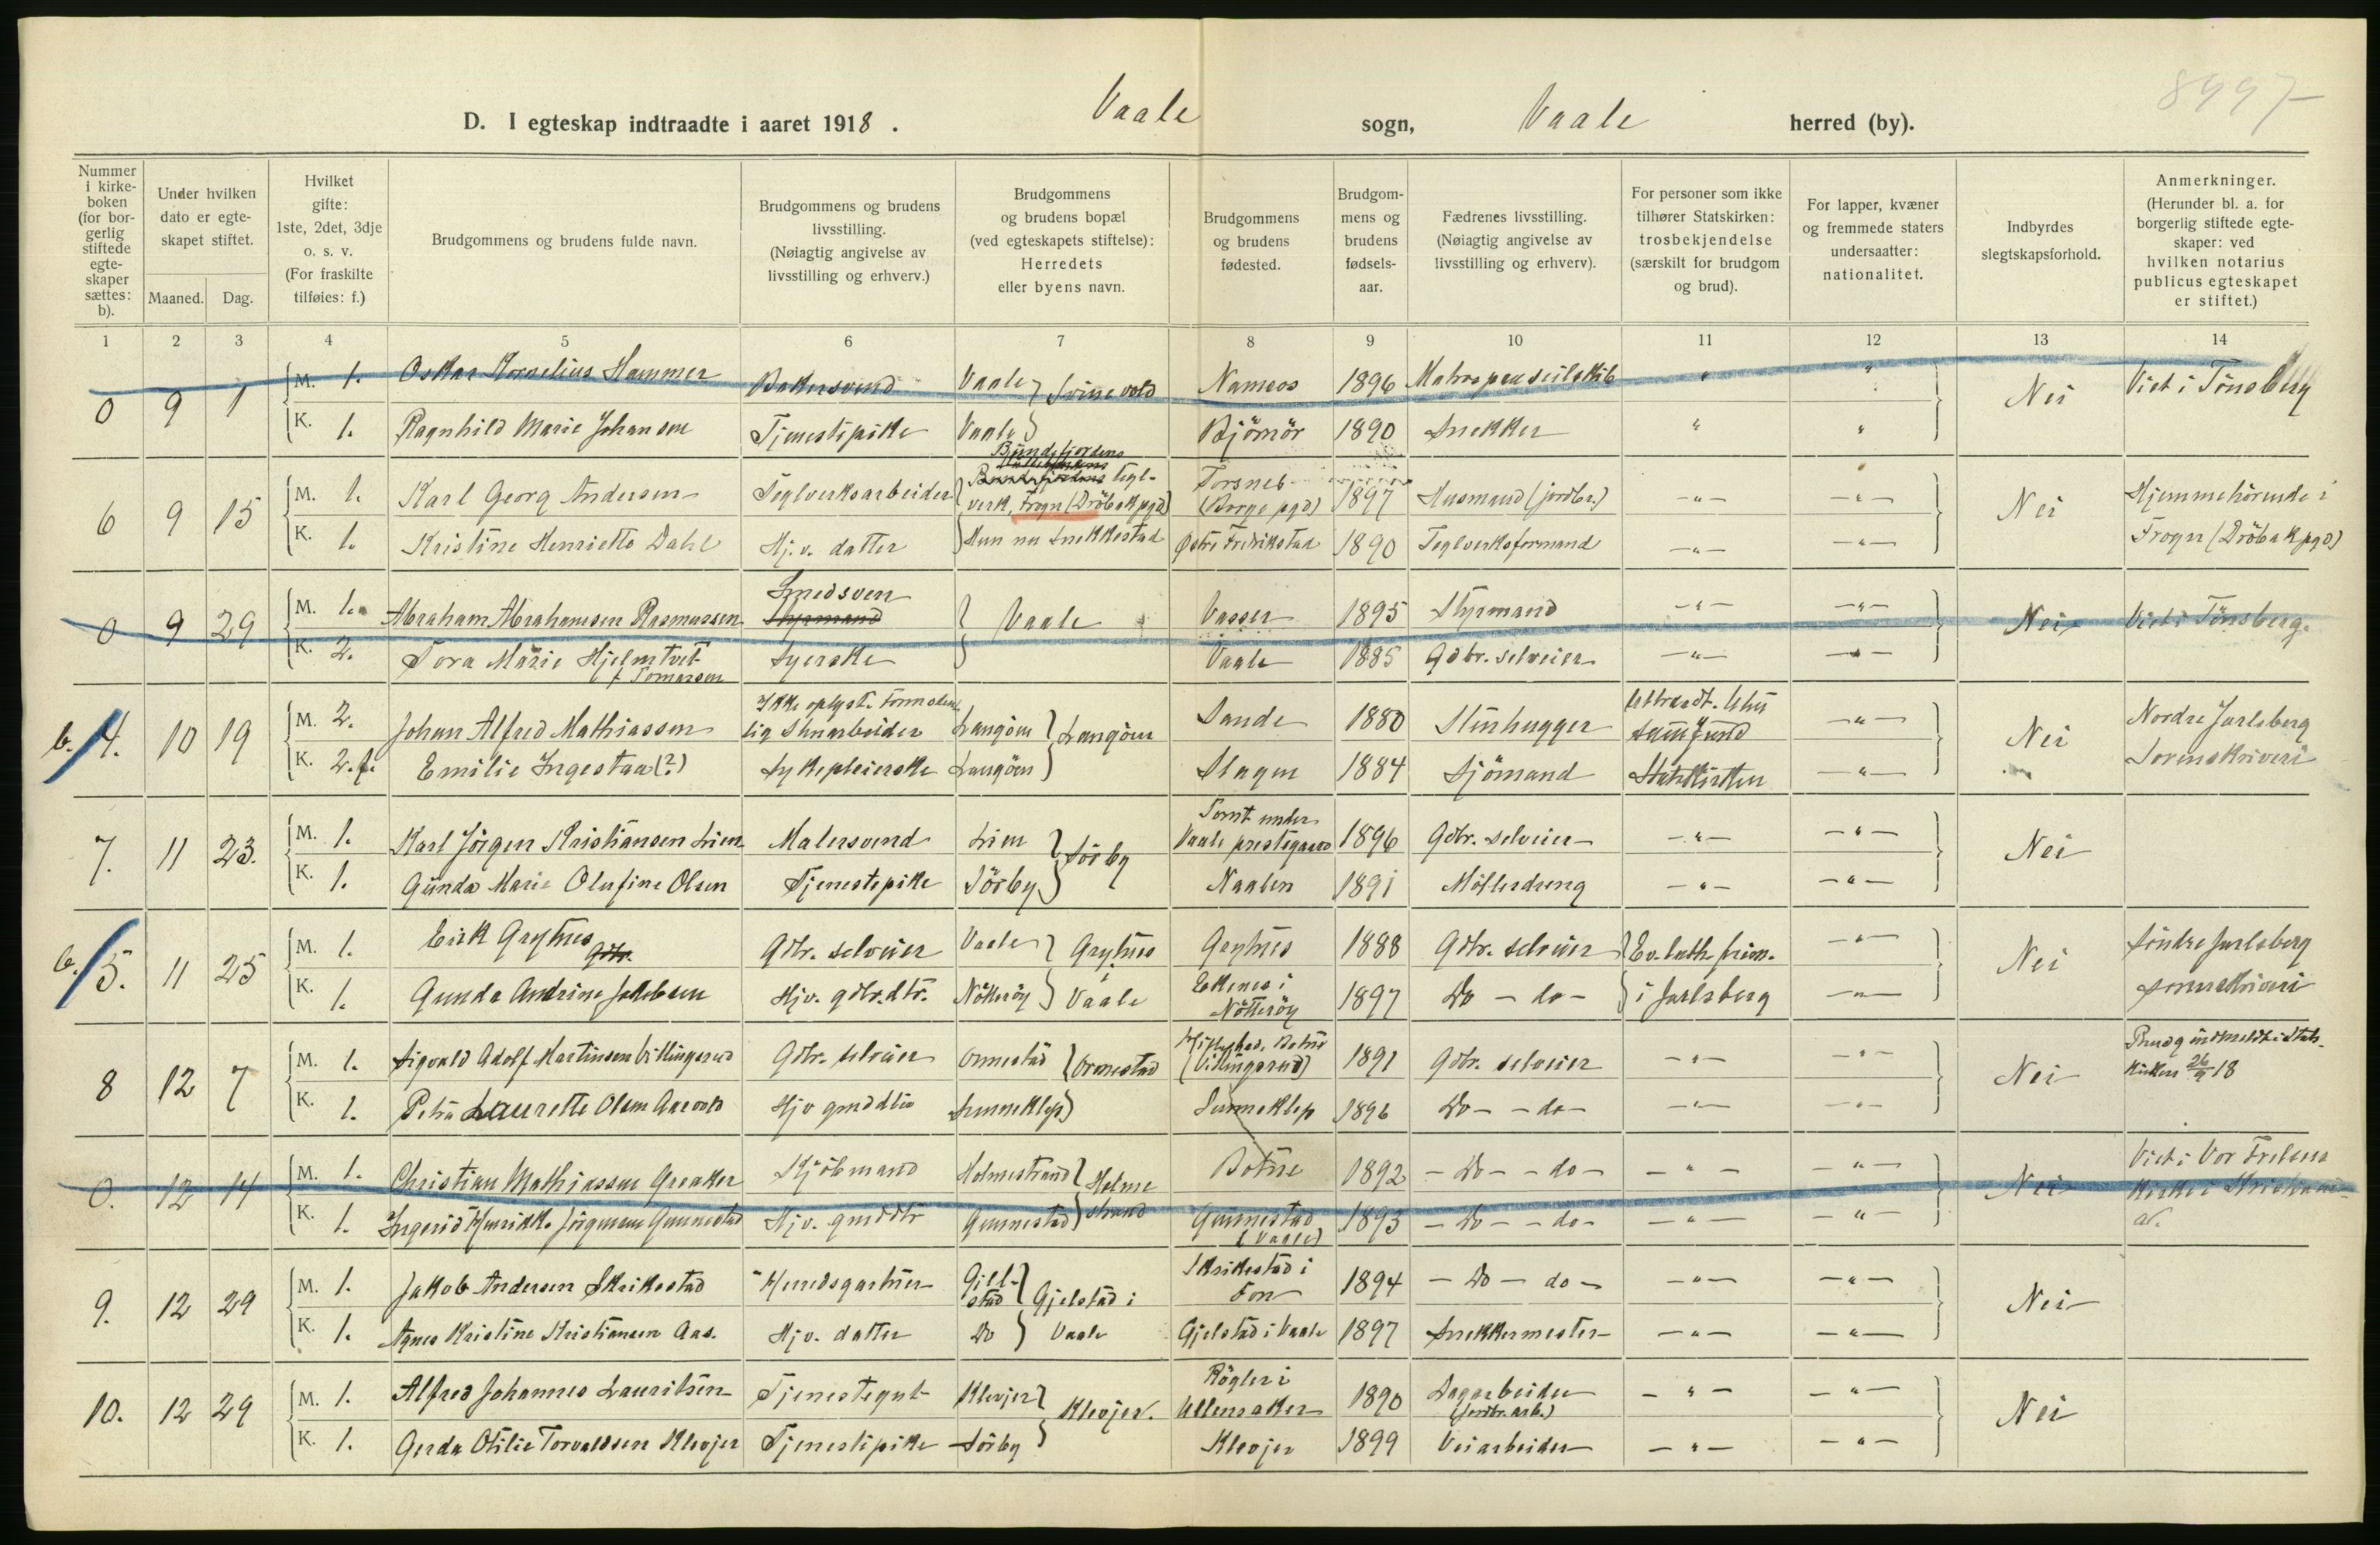 8997
D. I egteskap indtraadte i aaret 1918. Vaale sogn, Vaale herred (by).
Nummer i kirkeboken (for borgerlig stiftede egteskaper sættes: b).
Under hvilken dato er egteskapet stiftet.
Maaned. Dag.
Hvilket gifte: 1ste, 2det, 3dje o. s. v. (For fraskilte tilføies: f.)
Brudgommens og brudens fulde navn.
Brudgommens og brudens livsstilling. (Nøiagtig angivelse av livsstilling og erhverv.)
Brudgommens og brudens bopæl (ved egteskapets stiftelse): Herredets eller byens navn.
Brudgommens og brudens fødested.
Brudgommens og brudens fødselsaar.
Fædrenes livsstilling. (Nøiagtig angivelse av livsstilling og erhverv).
For personer som ikke tilhører Statskirken: trosbekjendelse (særskilt for brudgom og brud).
For lapper, kvæner og fremmede staters undersaatter: nationalitet.
Indbyrdes slegtskapsforhold.
Anmerkninger. (Herunder bl. a. for borgerlig stiftede egteskaper: ved hvilken notarius publicus egteskapet er stiftet.)
1 2 3 4 5 6 7 8 9 10 11 12 13 14
0 9 1 M. 1. Oskar Kornelius Hammer Bakersvend Vaale } Svinevold Namsos 1896 Matros paa seilskib " " Nei Viet i Tönsberg
K. 1. Ragnhild Marie Johansen Tjenestepike Vaale Björnör 1890 Snekker " "
6 9 15 M. 1. Karl Georg Andersen Teglverksarbeider Bundefjordens Tegl-verk, Frogn (Dröbak pgd) Torsnes (Borge pgd) 1897 Husmand (jordbr.) -"- -"- Nei Hjemmehörende i
K. 1. Kristine Henriette Dahl Hj.v. datter Hun nu Snekkestad Østre Fredrikstad 1890 Teglverksformand -"- -"- Frogn (Dröbak pgd)
0 9 29 M. 1. Abraham Abrahamsen Rasmussen Smedsven Styrmand } Vaale Vasser 1895 Styrmand -"- -"- Nei Viet i Tönsberg.
K. 2. Tora Marie Hjelmtvet f. Tomassen Syerske Vaale 1885 Gdbr. selveier -"- -"-
b. 4. 10 19 M. 2. Johan Alfred Mathiassen Ikke oplyst. Formodentlig Stenarbeider Langöen } Langöen Sande 1880 Stenhugger samfund -"- Nei Nordre Jarlsberg
K. 2. f. Emilie Ingestaa (?) Sykepleierske Langöen Slagen 1884 Sjömand Statskirken -"- Sorenskriveri
7. 11 23. M. 1. Karl Jörgen Kristiansen Lien Malersvend Lien } Sörby Tomt under Vaale prestegaard 1896 Gdbr. selveier -"- -"- Nei
K. 1. Gunda Marie Olufine Olsen Tjenestepike Sörby Naalen 1891 Möllerdreng -"- -"-
b. 5. 11 25 M. 1. Erik Grytnes Gdbr. Gdbr. selveier Vaale } Grytnes Grytnes 1888 Gdbr. selveier } Ev. luth. frim. -"- Nei Söndre Jarlsberg
K. 1. Gunda Andrine Jakobsen Hjv. gdbr. dtr. Nötteröy } Vaale Ekenes i Nötteröy 1897 Do - do - i Jarlsberg -"- sorenskriveri
8 12 7 M. 1. Sigvald Adolf Martinsen Villingsrud Gdbr. selveier Ormestad } Ormestad Botne (Villingsrud) 1891 Gdbr. selveier -"- -"- Nei indmeldt i Statskirken 26/9 18
K. 1. Petra Laurette Olsen Aasvold Hjv gmddtr Sunneklep Sunneklep 1896 Do - - do - -"- -"-
0. 12 14 M. 1. Christian Mathiassen Greaker Kjöbmand Holmestrand } Holmestrand Botne 1892 - Do - - do - -"- -"- Nei Viet i Vor Frelsers
K. 1. Ingerid Henrikke Jörgensen Gunnestad Hjv. gmddtr Gunnestad Gunnestad (Vaale) 1893 - Do - - do - -"- -"- Kirke i Kristiania.
9. 12 29 M. 1. Jakob Andersen Skrikestad Herredsgartner Gjelstad } Gjelstad i Skrikestad i Fon 1894 - Do - do - -"- -"- Nei
K. 1. Agnes Kristine Kristiansen Aas. Hjv. datter Do } Vaale Gjelstad i Vaale 1897 Snekkermester -"- -"-
10. 12 29 M. 1. Alfred Johannes Lauritsen Tjenestegut Klevjer } Klevjer. Rögler i Ullensaker 1890 Dagarbeider (jordbr. arb.) -"- -"- Nei
K. 1. Gerda Otilie Torvaldsen Klevjer Tjenestepike Sörby Klevjer 1899 Veiarbeider -"- -"-